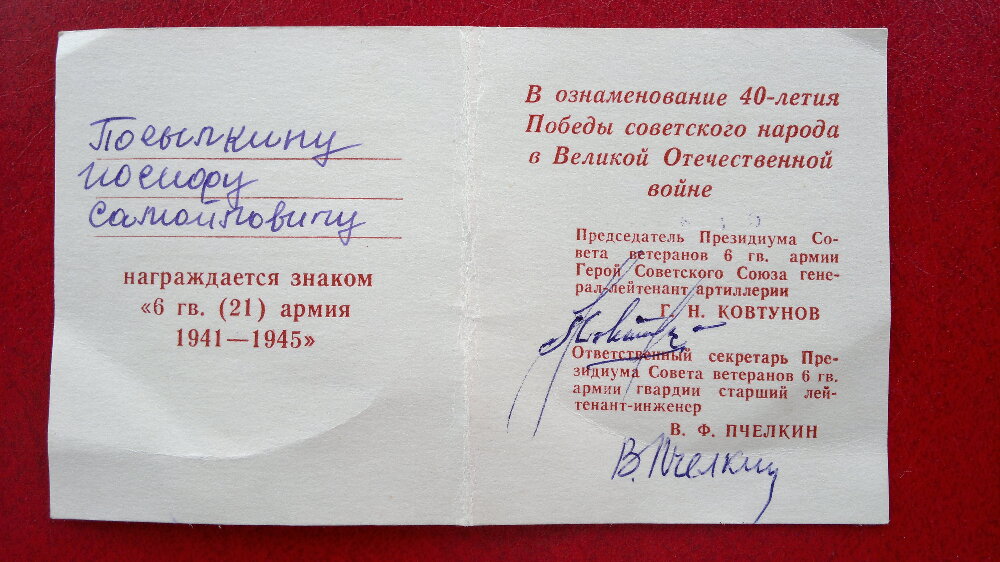 Посылкину
Иосифу
Самойловичу
награждается знаком
«6 гв. (21) армия
1941—1945»
В ознаменование 40-летия
Победы советского народа
в Великой Отечественной
войне
Председатель Президиума Со-
вета ветеранов 6 гв. армии
Герой Советского Союза гене-
рал-лейтенант артиллерии
Г. Н. КОВТУНОВ
Ответственный секретарь Пре-
зидиума Совета ветеранов 6 гв.
армии гвардии старший лей-
тенант-инженер
В. Ф. ПЧЕЛКИН
В. Пчелкин